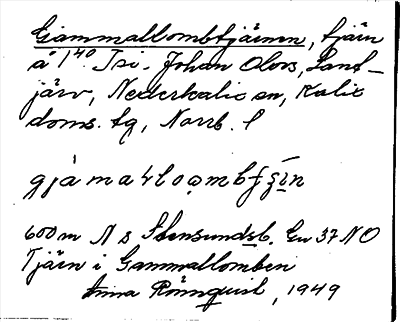 Gammallombtjärnen, tjärn
å 1⁴⁰ Isi. Johan Olovs, Sant-
järv, Nederkalix sn, Kalix
doms. tg, Norrb. l
600 m N s Stensundsb. Gu 37 NO
Tjärn i Gammallomben
Anna Rönnquist, 1949